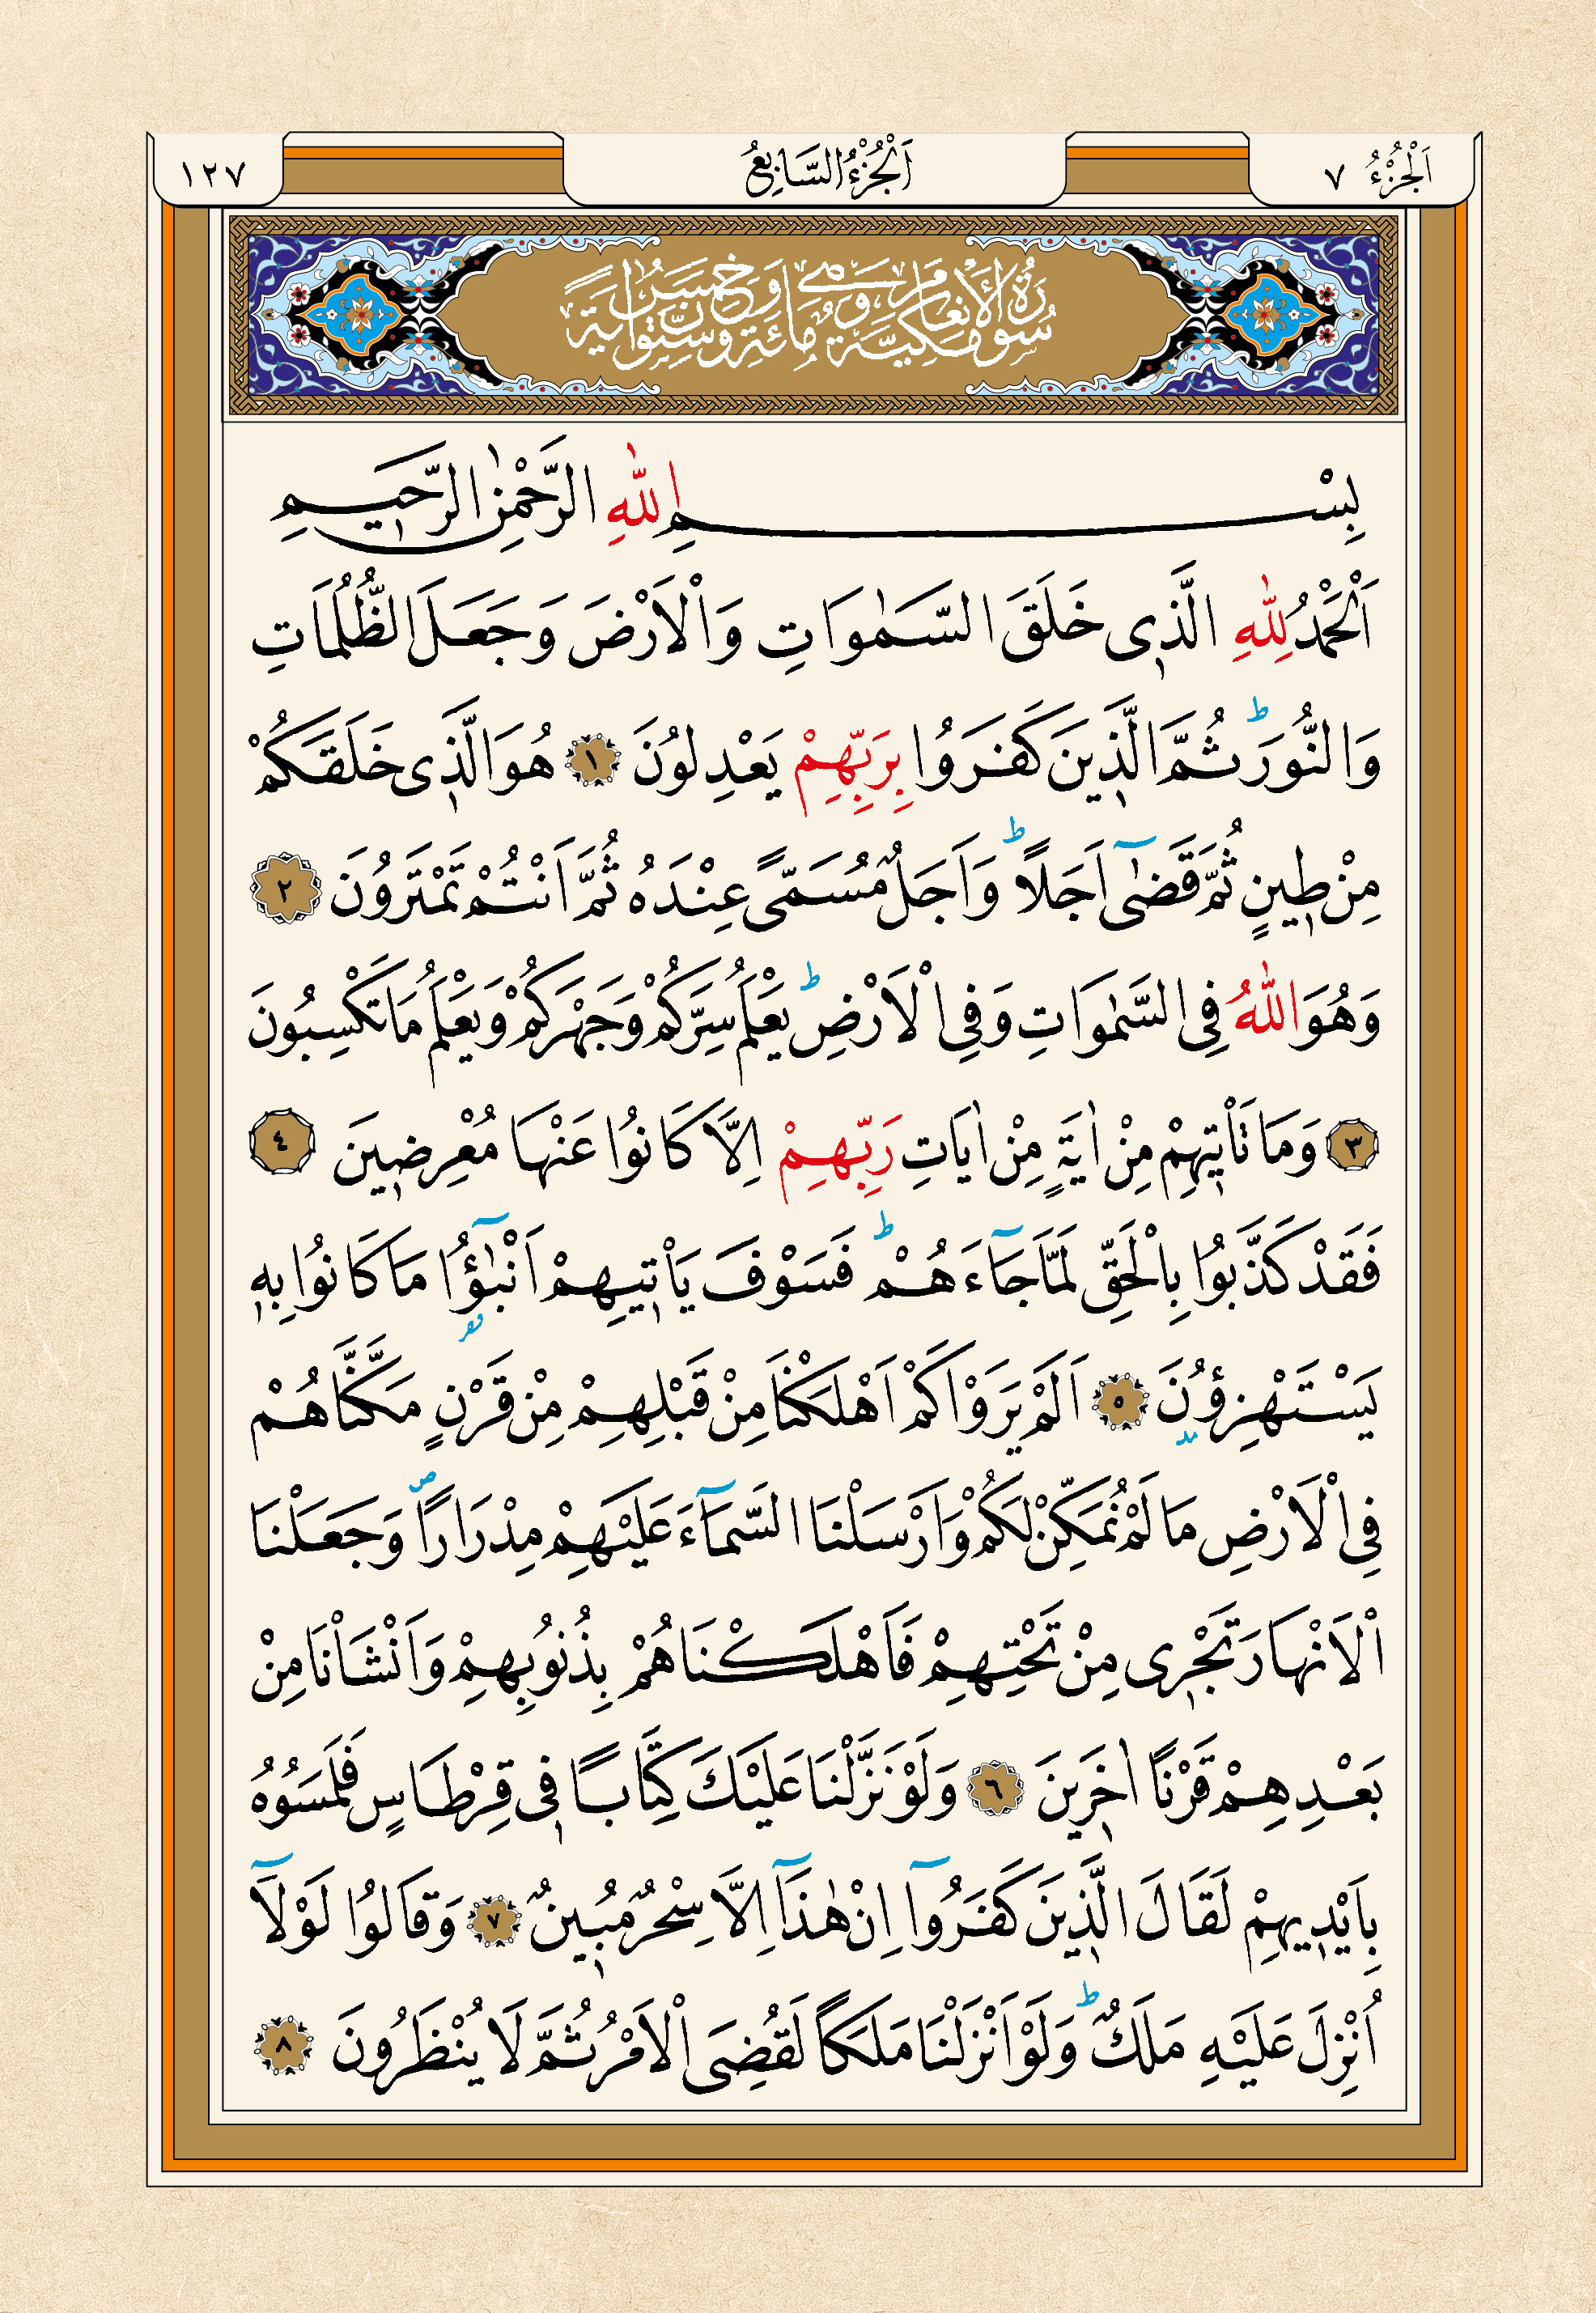 اَلْجُزْءُ ٧
اَلْجُزْءُ السَّابِعُ
١٢٧
سُورَةُ الْأَنْعَامِ مَكِّيَّةٌ وَهِيَ مِائَةٌ وَخَمْسٌ وَسِتُّونَ اٰيَةً
بِسْمِ اللّٰهِ الرَّحْمٰنِ الرَّحٖيمِ
اَلْحَمْدُ لِلّٰهِ الَّذٖى خَلَقَ السَّمٰوَاتِ وَالْاَرْضَ وَجَعَلَ الظُّلُمَاتِ
وَالنُّورَ ط ثُمَّ الَّذٖينَ كَفَرُوا بِرَبِّهِمْ يَعْدِلُونَ ١ هُوَ الَّذٖى خَلَقَكُمْ
مِنْ طٖينٍ ثُمَّ قَضٰٓى اَجَلًا ط وَاَجَلٌ مُسَمًّى عِنْدَهُ ثُمَّ اَنْتُمْ تَمْتَرُونَ ٢
وَهُوَ اللّٰهُ فِى السَّمٰوَاتِ وَفِى الْاَرْضِ ط يَعْلَمُ سِرَّكُمْ وَجَهْرَكُمْ وَيَعْلَمُ مَا تَكْسِبُونَ
٣ وَمَا تَاْتٖيهِمْ مِنْ اٰيَةٍ مِنْ اٰيَاتِ رَبِّهِمْ اِلَّا كَانُوا عَنْهَا مُعْرِضٖينَ ٤
فَقَدْ كَذَّبُوا بِالْحَقِّ لَمَّا جَٓاءَهُمْ ط فَسَوْفَ يَاْتٖيهِمْ اَنْبٰٓؤُا مَا كَانُوا بِهٖ
يَسْتَهْزِؤُنَ ٥ اَلَمْ يَرَوْا كَمْ اَهْلَكْنَا مِنْ قَبْلِهِمْ مِنْ قَرْنٍ مَكَّنَّاهُمْ
فِى الْاَرْضِ مَا لَمْ نُمَكِّنْ لَكُمْ وَاَرْسَلْنَا السَّمَٓاءَ عَلَيْهِمْ مِدْرَارًا ص وَجَعَلْنَا
الْاَنْهَارَ تَجْرٖى مِنْ تَحْتِهِمْ فَاَهْلَكْنَاهُمْ بِذُنُوبِهِمْ وَاَنْشَاْنَا مِنْ
بَعْدِهِمْ قَرْنًا اٰخَرٖينَ ٦ وَلَوْ نَزَّلْنَا عَلَيْكَ كِتَابًا فٖى قِرْطَاسٍ فَلَمَسُوهُ
بِاَيْدٖيهِمْ لَقَالَ الَّذٖينَ كَفَرُٓوا اِنْ هٰذَٓا اِلَّا سِحْرٌ مُبٖينٌ ٧ وَقَالُوا لَوْلَٓا
اُنْزِلَ عَلَيْهِ مَلَكٌ ط وَلَوْ اَنْزَلْنَا مَلَكًا لَقُضِىَ الْاَمْرُ ثُمَّ لَا يُنْظَرُونَ ٨